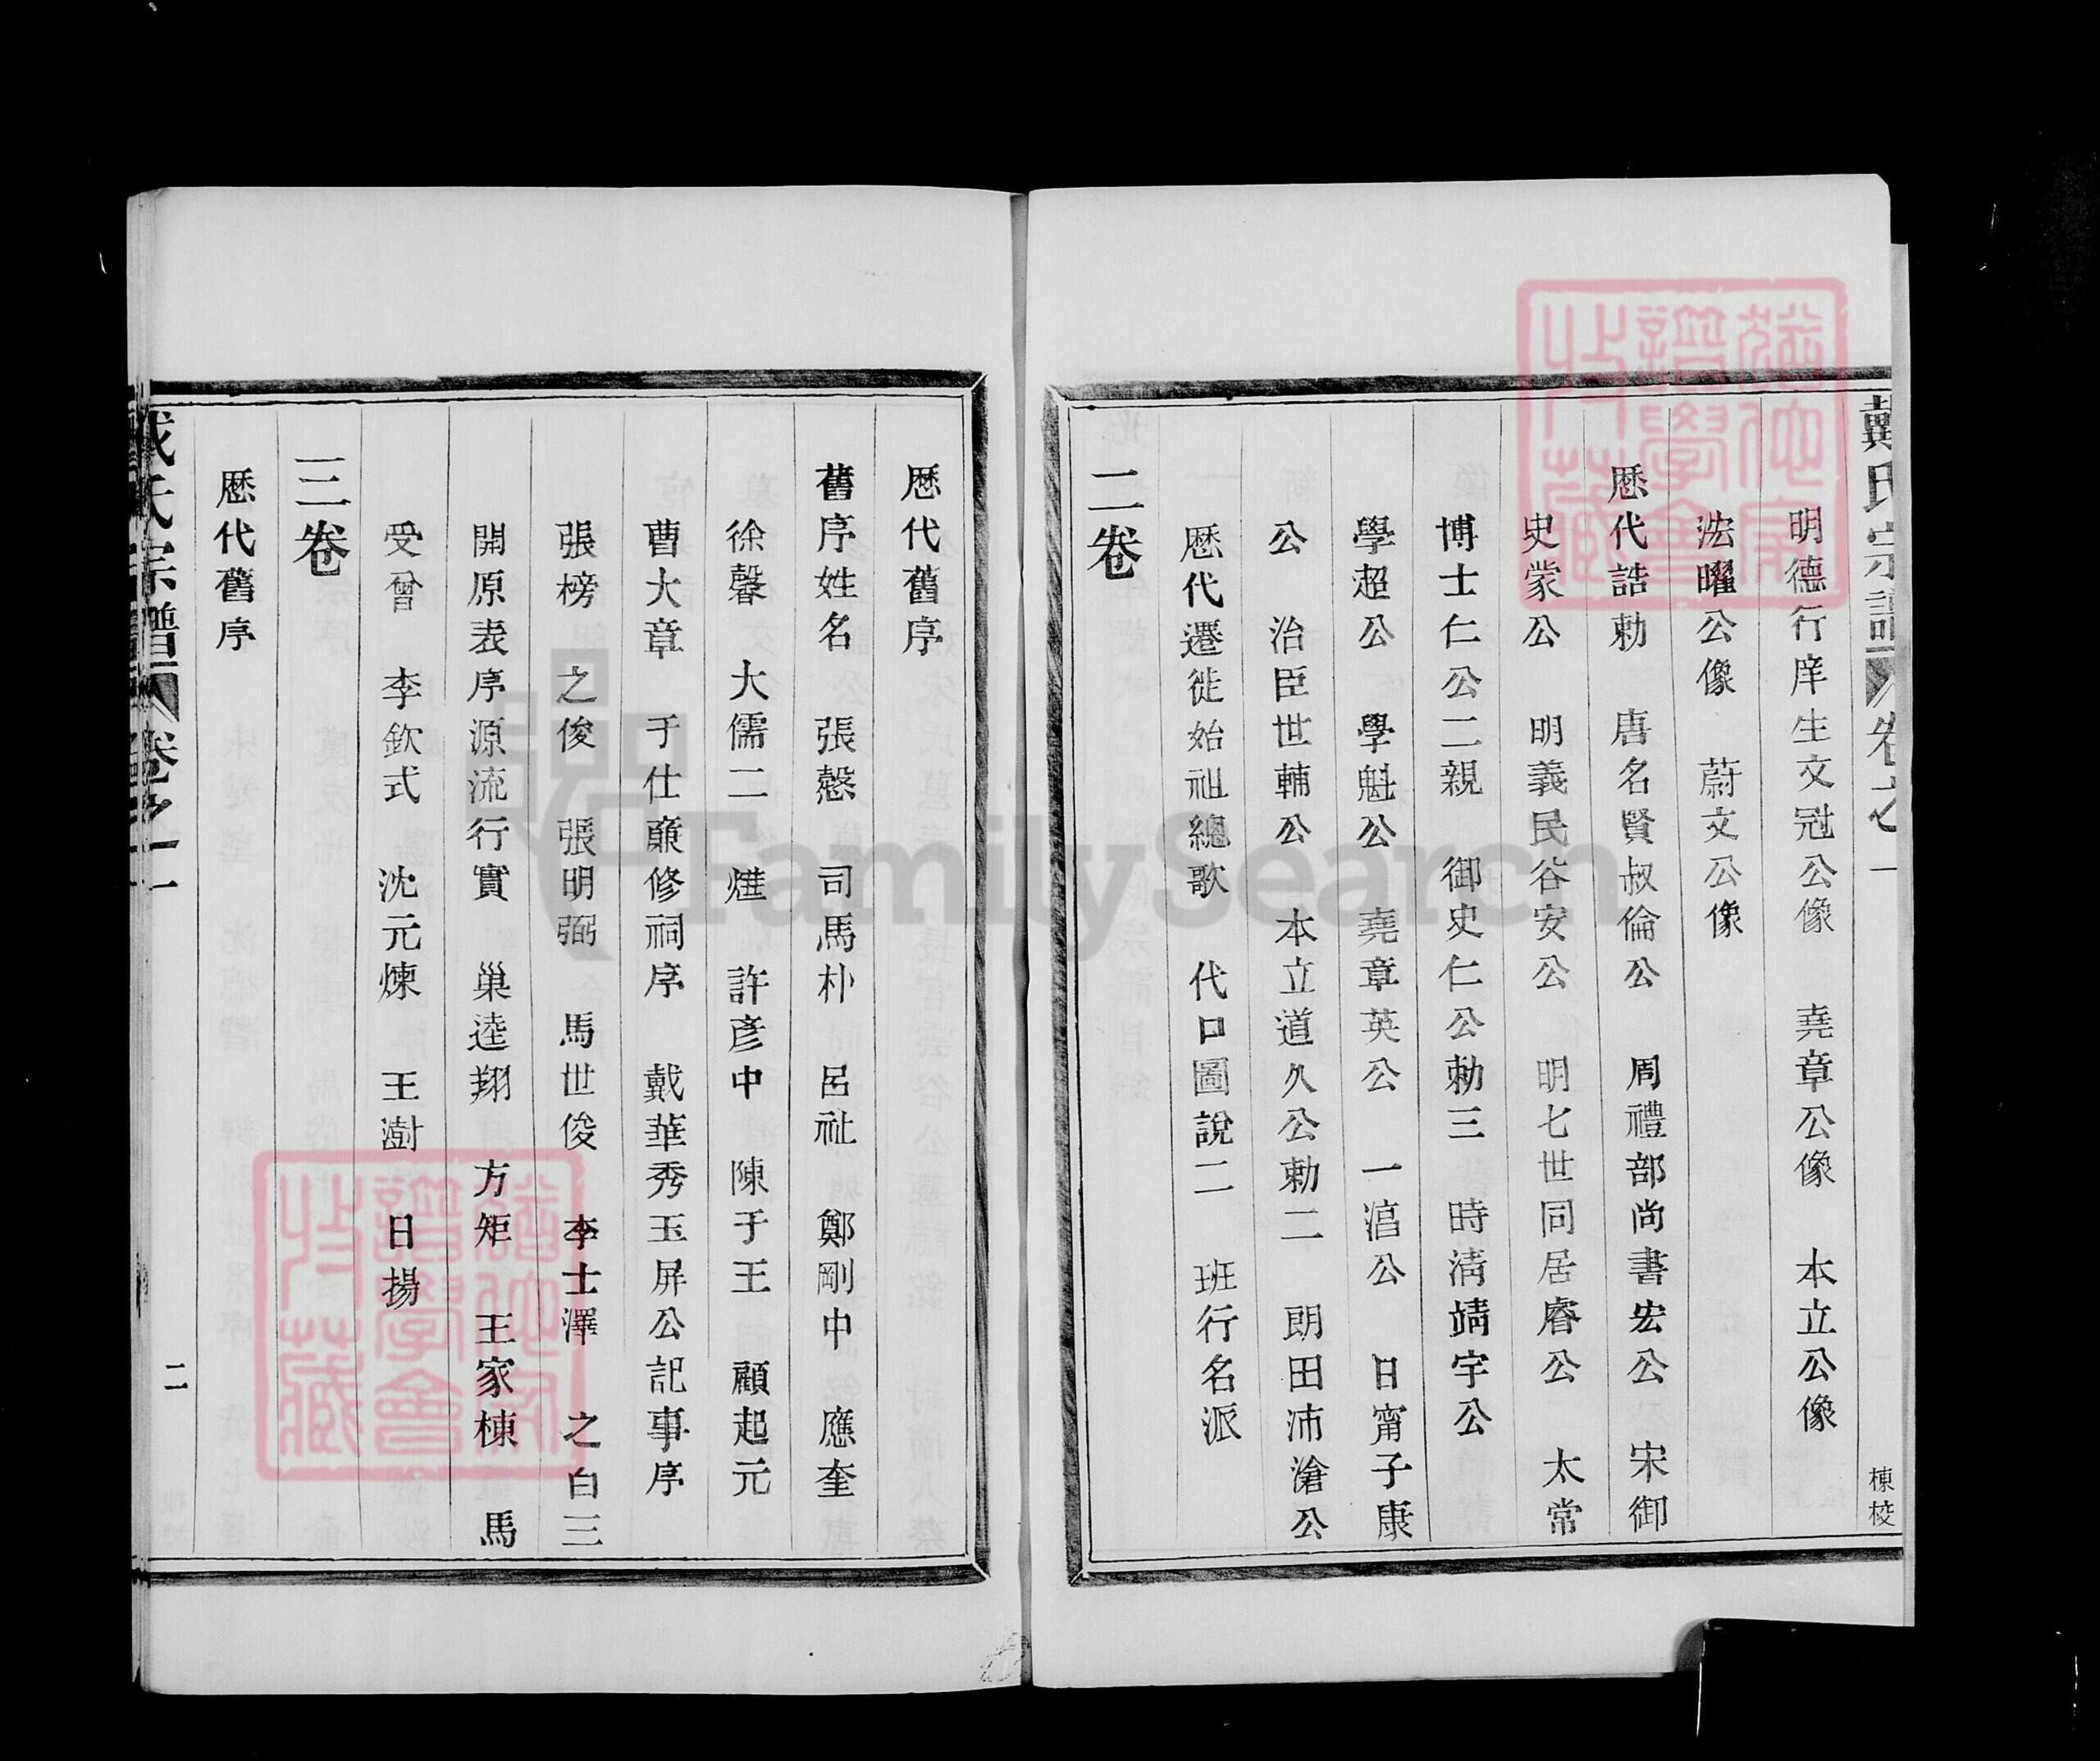 戴氏宗譜 卷之一 棟校
明德行庠生文冠公像 堯章公像 本立公像
浤曜公像 蔚文公像
歷代誥勅 唐名賢叔倫公 周禮部尚書宏公 宋御
史蒙公 明義民谷安公 明七世同居睿公 太常
博士仁公二親 御史仁公勅三 時清靖宇公
學超公 學魁公 堯章英公 一涫公 日甯子康
公 治臣世輔公 本立道久公勅二 朗田沛滄公
歷代遷徙始祖總歌 代口圖說二 班行名派
二卷
歷代舊序
舊序姓名 張慤 司馬朴 呂祉 鄭剛中 應奎
徐馨 大儒二 爟 許彥中 陳于王 顧起元
曹大章 于仕廉修祠序 戴華秀玉屏公記事序
張榜 之俊 張明弼 馬世俊 李士澤 之白三
開原表序源流行實 巢逵翔 方矩 王家棟 馬
受曾 李欽式 沈元煉 王澍 日揚
三卷
歷代舊序
戴氏宗譜 卷之一 二
FamilySearch